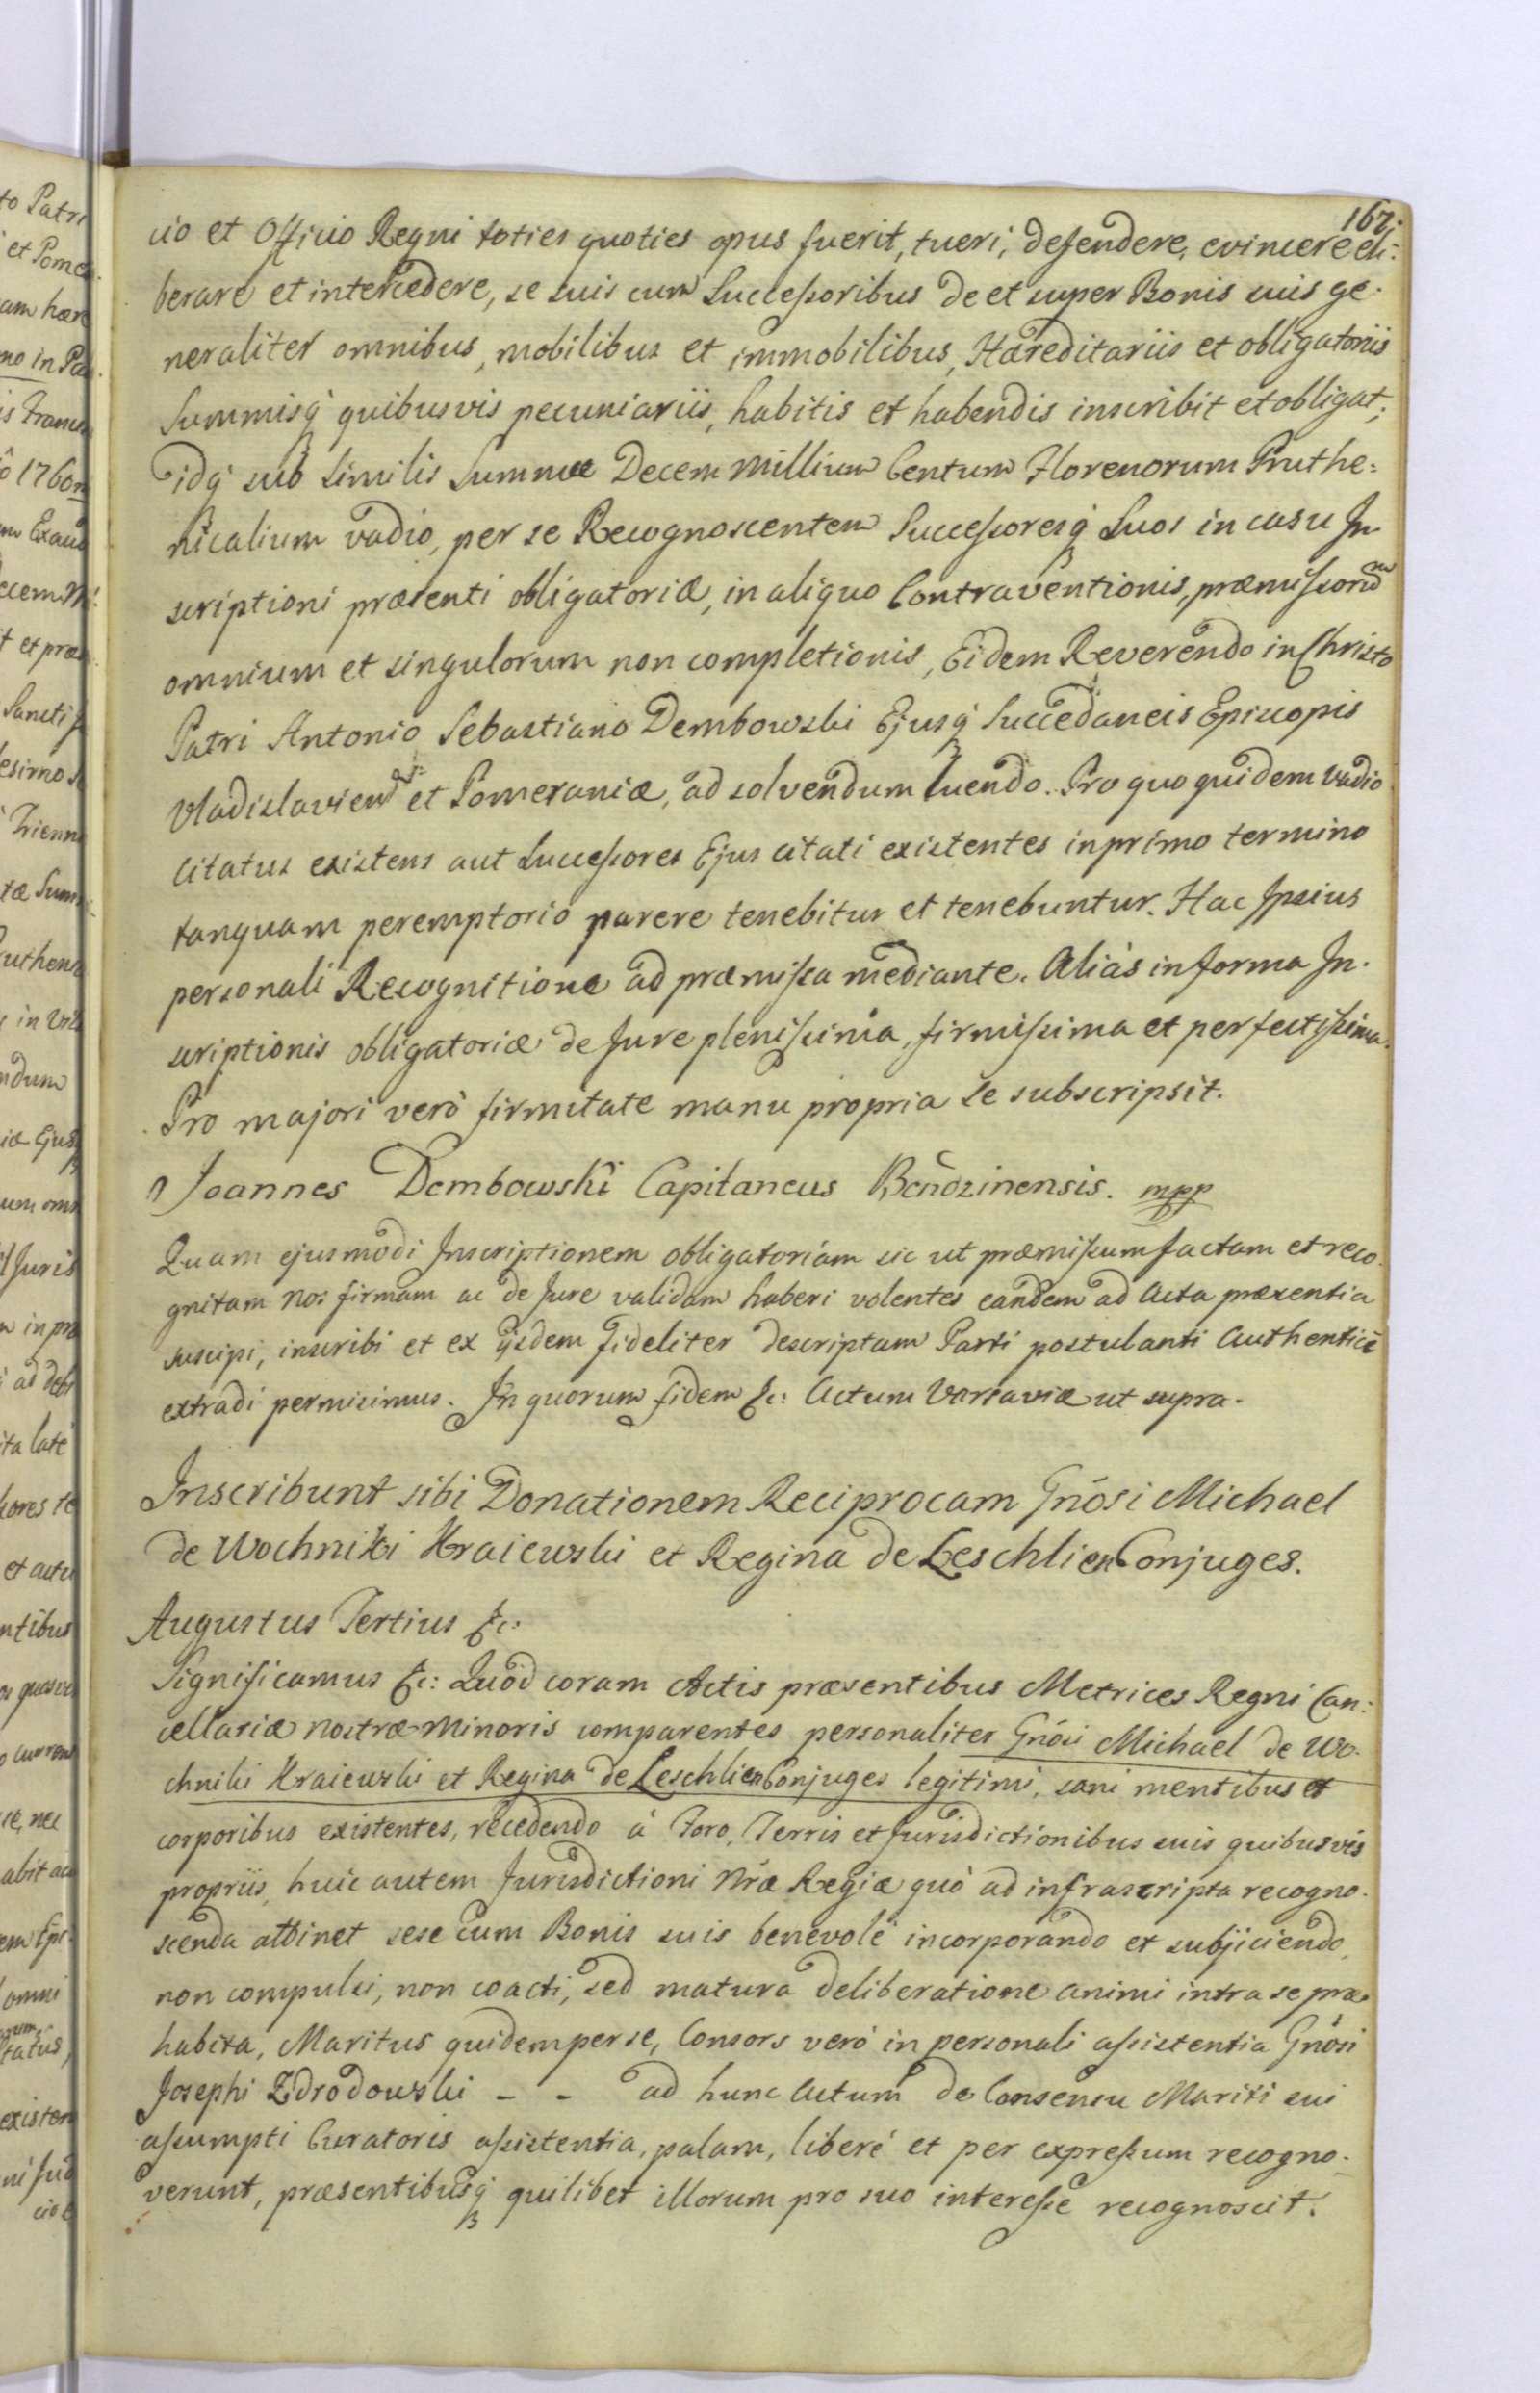 162.
cio et Officio Regni toties quoties opus fuerit, tueri, defendere, evincere eli-
berare et intercedere, se suis cum Successoribus de et super Bonis suis ge-
neraliter omnibus, mobilibus et immobilibus, Hæreditariis et obligatoriis
Summisq́ quibusvis pecuniariis, habitis et habendis inscribit et obligat;
idq́ sub similis Summæ Decem Millium Centum Florenorum Pruthe-
nicalium vadio, per se Recognoscentem Successoresq́ Suos in casu In-
scriptioni præsenti obligatoriæ, in aliquo Contraventionis, præmissorum
omnium et singulorum non completionis, Eidem Reverendo in Christo
Patri Antonio Sebastiano Dembowski Ejusq́ Succedaneis Episcopis
Vladislavien: et Pomeraniæ, ad solvendum luendo. Pro quo quidem vadio
citatus existens aut Successores Ejus citati existentes in primo termino
tanquam peremptorio parere tenebitur et tenebuntur. Hac Ipsius
personali Recognitione ad præmissa mediante. Aliàs in forma In-
scriptionis obligatoriæ de Jure plenissima, firmissima et perfectissima.
Pro majori verò firmitate manu propria se subscripsit.
Joannes Dembowski Capitaneus Bendzinensis. mpp
Quam ejusmodi Inscriptionem obligatoriam sic ut præmissum factam et reco-
gnitam nos firmam ac de Jure validam haberi volentes eandem ad Acta præsentia
suscipi, inscribi et ex ijsdem fideliter descriptam Parti postulanti Authenticè
extradi permisimus. In quorum fidem &c: Actum Varsaviæ ut supra.
Inscribunt sibi Donationem Reciprocam Gnősi Michael
de Wochniki Kraiewski et Regina de Leschlien Conjuges.
Augustus Tertius &c:
Significamus &c: Quòd coram Actis præsentibus Metrices Regni Can-
cellariæ nostræ Minoris comparentes personaliter Gnősi Michael de Wo-
chniki Kraiewski et Regina de Leschlien Conjuges legitimi, sani mentibus et
corporibus existentes, recedendo à Foro, Terris et Jurisdictionibus suis quibusvis
propriis, huic autem Jurisdictioni Nræ Regiæ quò ad infrascripta recogno-
scenda attinet sese cum Bonis suis benevolè incorporando et subjiciendo,
non compulsi, non coacti, sed matura deliberatione animi intra se præ-
habita, Maritus quidem per se, Consors verò in personali assistentia Gnősi
Josephi Zdrodowski - - ad hunc Actum de Consensu Mariti sui
assumpti Curatoris assistentia, palam, liberè et per expressum recogno-
verunt, præsentibusq́ quilibet illorum pro suo interesse recognoscit.